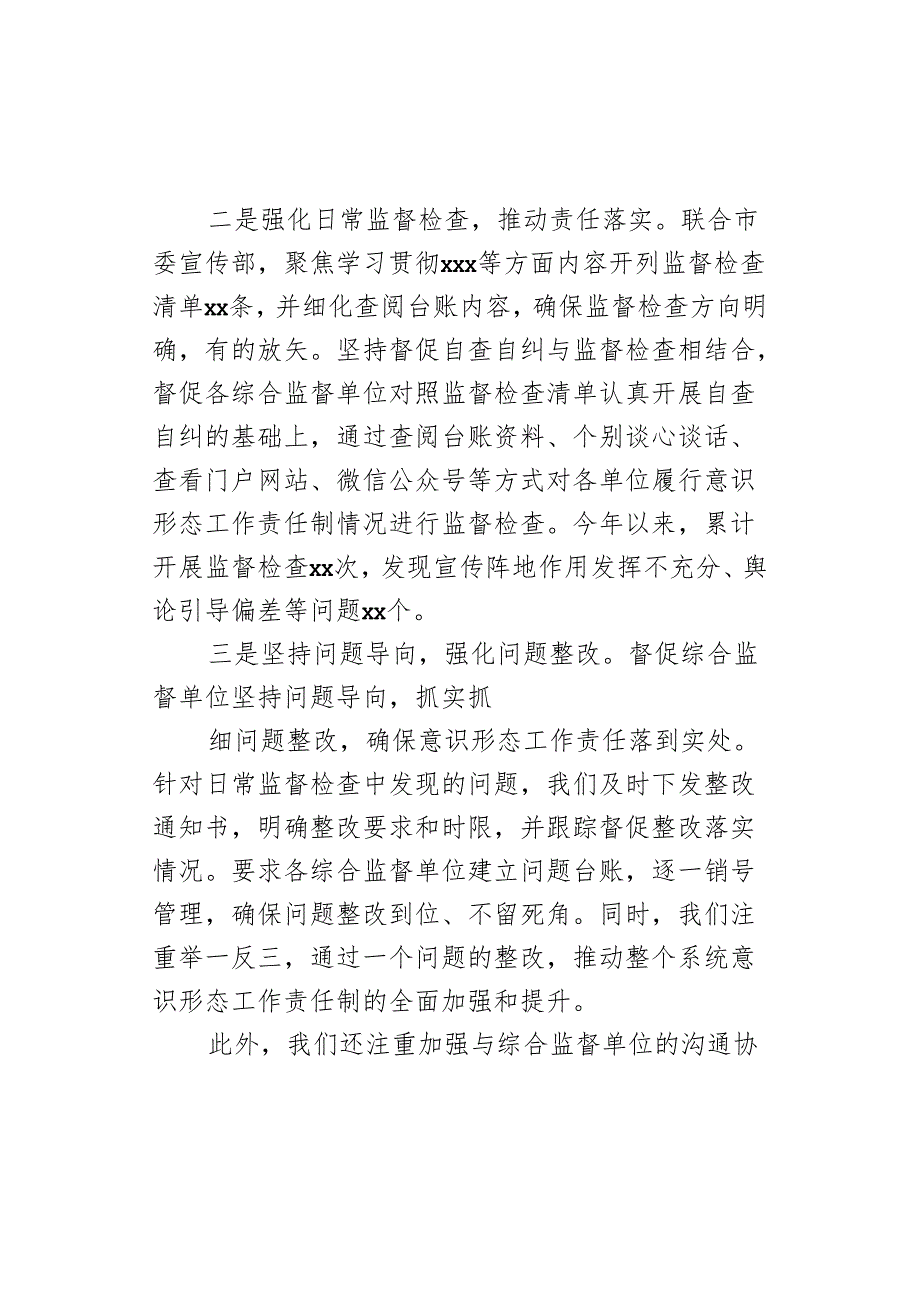 二是强化日常监督检查，推动责任落实。联合市
委宣传部，聚焦学习贯彻xxx等方面内容开列监督检查
清单xx条，并细化查阅台账内容，确保监督检查方向明
确，有的放矢。坚持督促自查自纠与监督检查相结合，
督促各综合监督单位对照监督检查清单认真开展自查
自纠的基础上，通过查阅台账资料、个别谈心谈话、
查看门户网站、微信公众号等方式对各单位履行意识
形态工作责任制情况进行监督检查。今年以来，累计
开展监督检查xx次，发现宣传阵地作用发挥不充分、舆
论引导偏差等问题xx个。
三是坚持问题导向，强化问题整改。督促综合监
督单位坚持问题导向，抓实抓
细问题整改，确保意识形态工作责任落到实处。
针对日常监督检查中发现的问题，我们及时下发整改
通知书，明确整改要求和时限，并跟踪督促整改落实
情况。要求各综合监督单位建立问题台账，逐一销号
管理，确保问题整改到位、不留死角。同时，我们注
重举一反三，通过一个问题的整改，推动整个系统意
识形态工作责任制的全面加强和提升。
此外，我们还注重加强与综合监督单位的沟通协